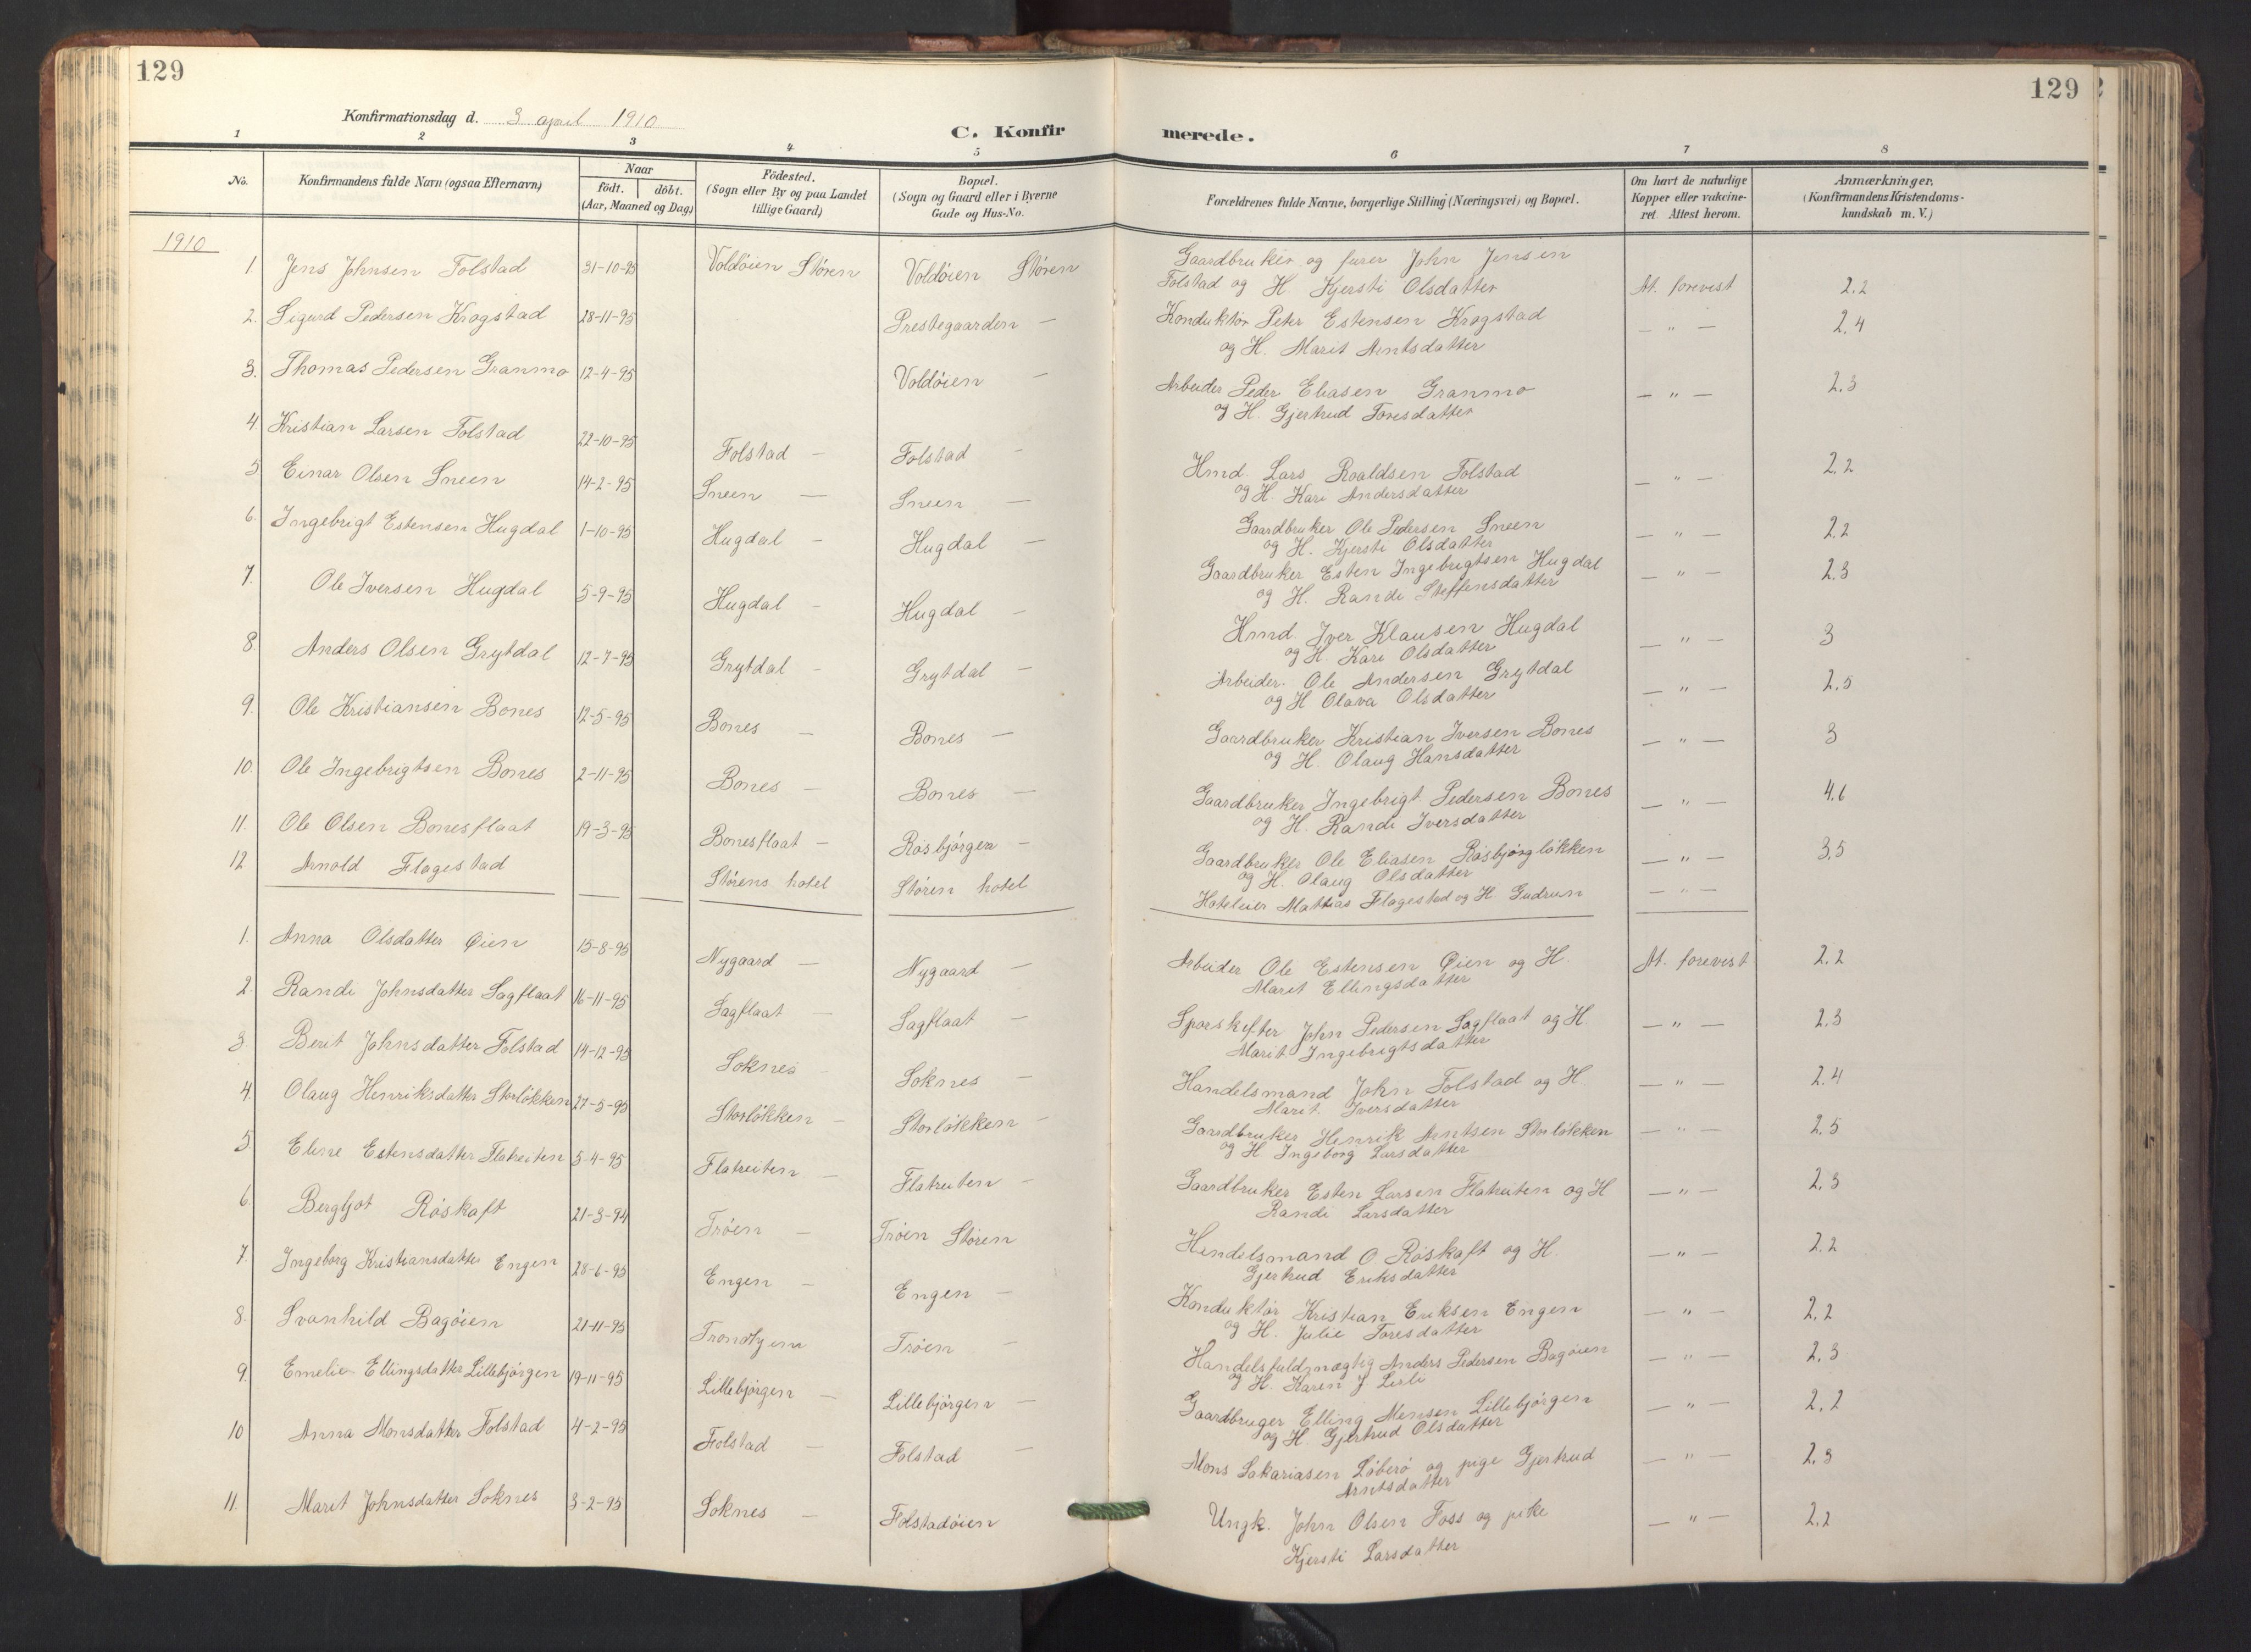 129
129
Konfirmationsdag d. 3 april 1910
C. Konfir merede.
1 2 3 4 5 6 7 8
No.
Konfirmandens fulde Navn (ogsaa Efternavn)
Naar
födt. döbt.
(Aar, Maaned og Dag)
Födested.
(Sogn eller By og paa Landet
tillige Gaard)
Bopæl.
(Sogn og Gaard eller i Byerne
Gade og Hus-No.
Forældrenes fulde Navne, borgerlige Stilling (Næringsvei) og Bopæl.
Om havt de naturlige
Kopper eller vakcine-
ret. Attest herom.
Anmærkninger.
(Konfirmandens Kristendoms-
kundskab m. V.)
1910
1 Jens Johnsen Folstad 31-10-95 Voldöien Stören Voldöien Stören Gaardbruker og furer John Jensen
Folstad og H. Kjersti Olsdatter At. forevist 2.2
2. Sigurd Pedersen Krogstad 28-11-95 Prestegaarden — Konduktör Peter Estensen Krogstad — " — 2.4
og H. Marit Arntsdatter
3. Thomas Pedersen Granmo 12-4-95 Voldöien — Arbeider Peder Eliasen Granmo — " — 2.3
og H. Gjertrud Toresdatter
4 Kristian Larsen Folstad 22-10-95 Folstad — Folstad - Hmd. Lars Roaldsen Folstad — " — 2.2
og H. Kari Andersdatter
5 Einar Olsen Sneen 14-2-95 Sneen — Sneen — Gaardbruker Ole Pedersen Sneen — " — 2.2
og H. Kjersti Olsdatter
6. Ingebrigt Estensen Hugdal 1-10-95 Hugdal — Hugdal — Gaardbruker Esten Ingebrigtsen Hugdal — " — 2.3
og H. Randi Steffensdatter
7. Ole Iversen Hugdal 5-9-95 Hugdal — Hugdal — Hmd. Iver Klausen Hugdal — " — 3
og H. Kari Olsdatter
8. Anders Olsen Grytdal 12-7-95 Grytdal — Grytdal — Arbeider. Ole Andersen Grytdal — " — 2.5
og H Olava Olsdatter
9. Ole Kristiansen Bones 12-5-95 Bones — Bones — Gaardbruker Kristian Iversen Bones — " — 3
og H. Olaug Hansdatter
10. Ole Ingebrigtsen Bones 2-11-95 Bones — Bones — Gaardbruker Ingebrigt Pedersen Bones — " — 4.6
og H. Randi Iversdatter
11. Ole Olsen Bonesflaat 19-3-95 Bonesflaat — Rosbjörgen — Gaardbruker Ole Eliasen Rosbjörglökken — " — 3.5
og H. Olaug Olsdatter
12 Arnold Flagestad Störens hotel Stören hotel Hoteleier Mathias Flagestad og H. Gudrun — " —
1. Anna Olsdatter Öien 15-8-95 Nygaard — Nygaard — Arbeider Ole Estensen Öien og H. At. forevist 2.2
Marit Ellingsdatter
2. Randi Johnsdatter Sagflaat 16-11-95 Sagflaat — Sagflaat — John Pedersen Sagflaat og H. — " — 2.3
Marit Ingebrigtsdatter
3. Berit Johnsdatter Folstad 14-12-95 Soknes - Soknes — Handelsmand John Folstad og H. — " — 2.4
Marit Iversdatter
4. Olaug Henriksdatter Storlökken 27-5-95 Storlökken — Storlökken — Gaardbruker Henrik Arntsen Storlökken — " — 2.5
og H Ingeborg Larsdatter
5 Elene Estensdatter Flatreiten 5-4-95 Flatreiten — Flatreiten — Gaardbruker Esten Larsen Flatreiten og H — " — 2.3
Randi Larsdatter
6. Bergljot Röskaft 21-3-94 Tröen — Tröen Stören Hendelsmand O Röskaft og H. — " — 2.2
Gjertrud Eriksdatter
7. Ingeborg Kristiansdatter Engen 28-6-95 Engen — Engen — Konduktör Kristian Eriksen Engen — " — 2.2
og H. Julie Toresdatter
8. Svanhild Bagöien 21-11-95 Trondhjem Tröen — Handelsfuldmægtig Anders Pedersen Bagöien — " — 2.3
og H. Karen J Lerli
9. Emelie Ellingsdatter Lillebjörgen 19-11-95 Lillebjörgen — Lillebjörgen — Gaardbruger Elling Monsen Lillebjörgen — " — 2.2
og H. Gjertrud Olsdatter
10 Anna Monsdatter Folstad 4-2-95 Folstad — Folstad — Mons Sakariasen Löberö og pige Gjertrud — " — 2.3
Arntsdatter
11. Marit Johnsdatter Soknes 3-2-95 Soknes — Folstadöien Ungk. John Olsen Foss og pike — " — 2.2
Kjersti Larsdatter